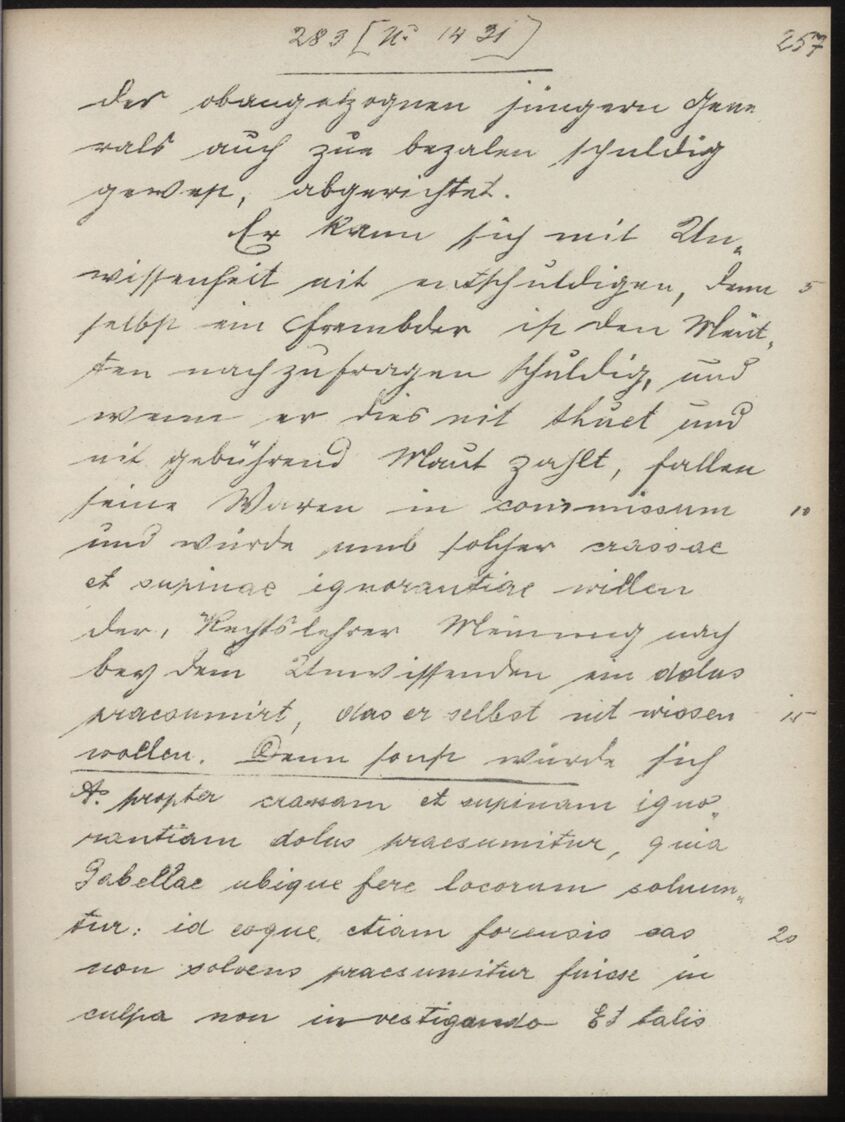 283 [No 1431] 257
der obangetzognen jüngern Gene
rals auch zue bezalen schuldig
gewest, abgerichtet.
Er kann sich mit Un„
wissenheit nit entschuldigen, denn 5
selbst ein Frembder ist den Meüt„
ten nachzufragen schuldig, und
wenn er dies nit thuet und
nit gebührend Maut zahlt, fallen
seine Waren in commissum 10
und würde umb solcher crassae
et supinae ignorantiae willen
der, Rechtslehrer Meinung nach
bey dem Unwissenden ein dolus
praesumirt, das er selbst nit wissen 15
wollen. Denn sonst würde sich
propter crassam et supinam igno„
rantiam dolus praesumitur, quia
Gabellae ubique fere locorum solvun„
tur: id eoque etiam forensis eas 20
non solvens praesumitur fuisse in
culpa non investigando Et talis